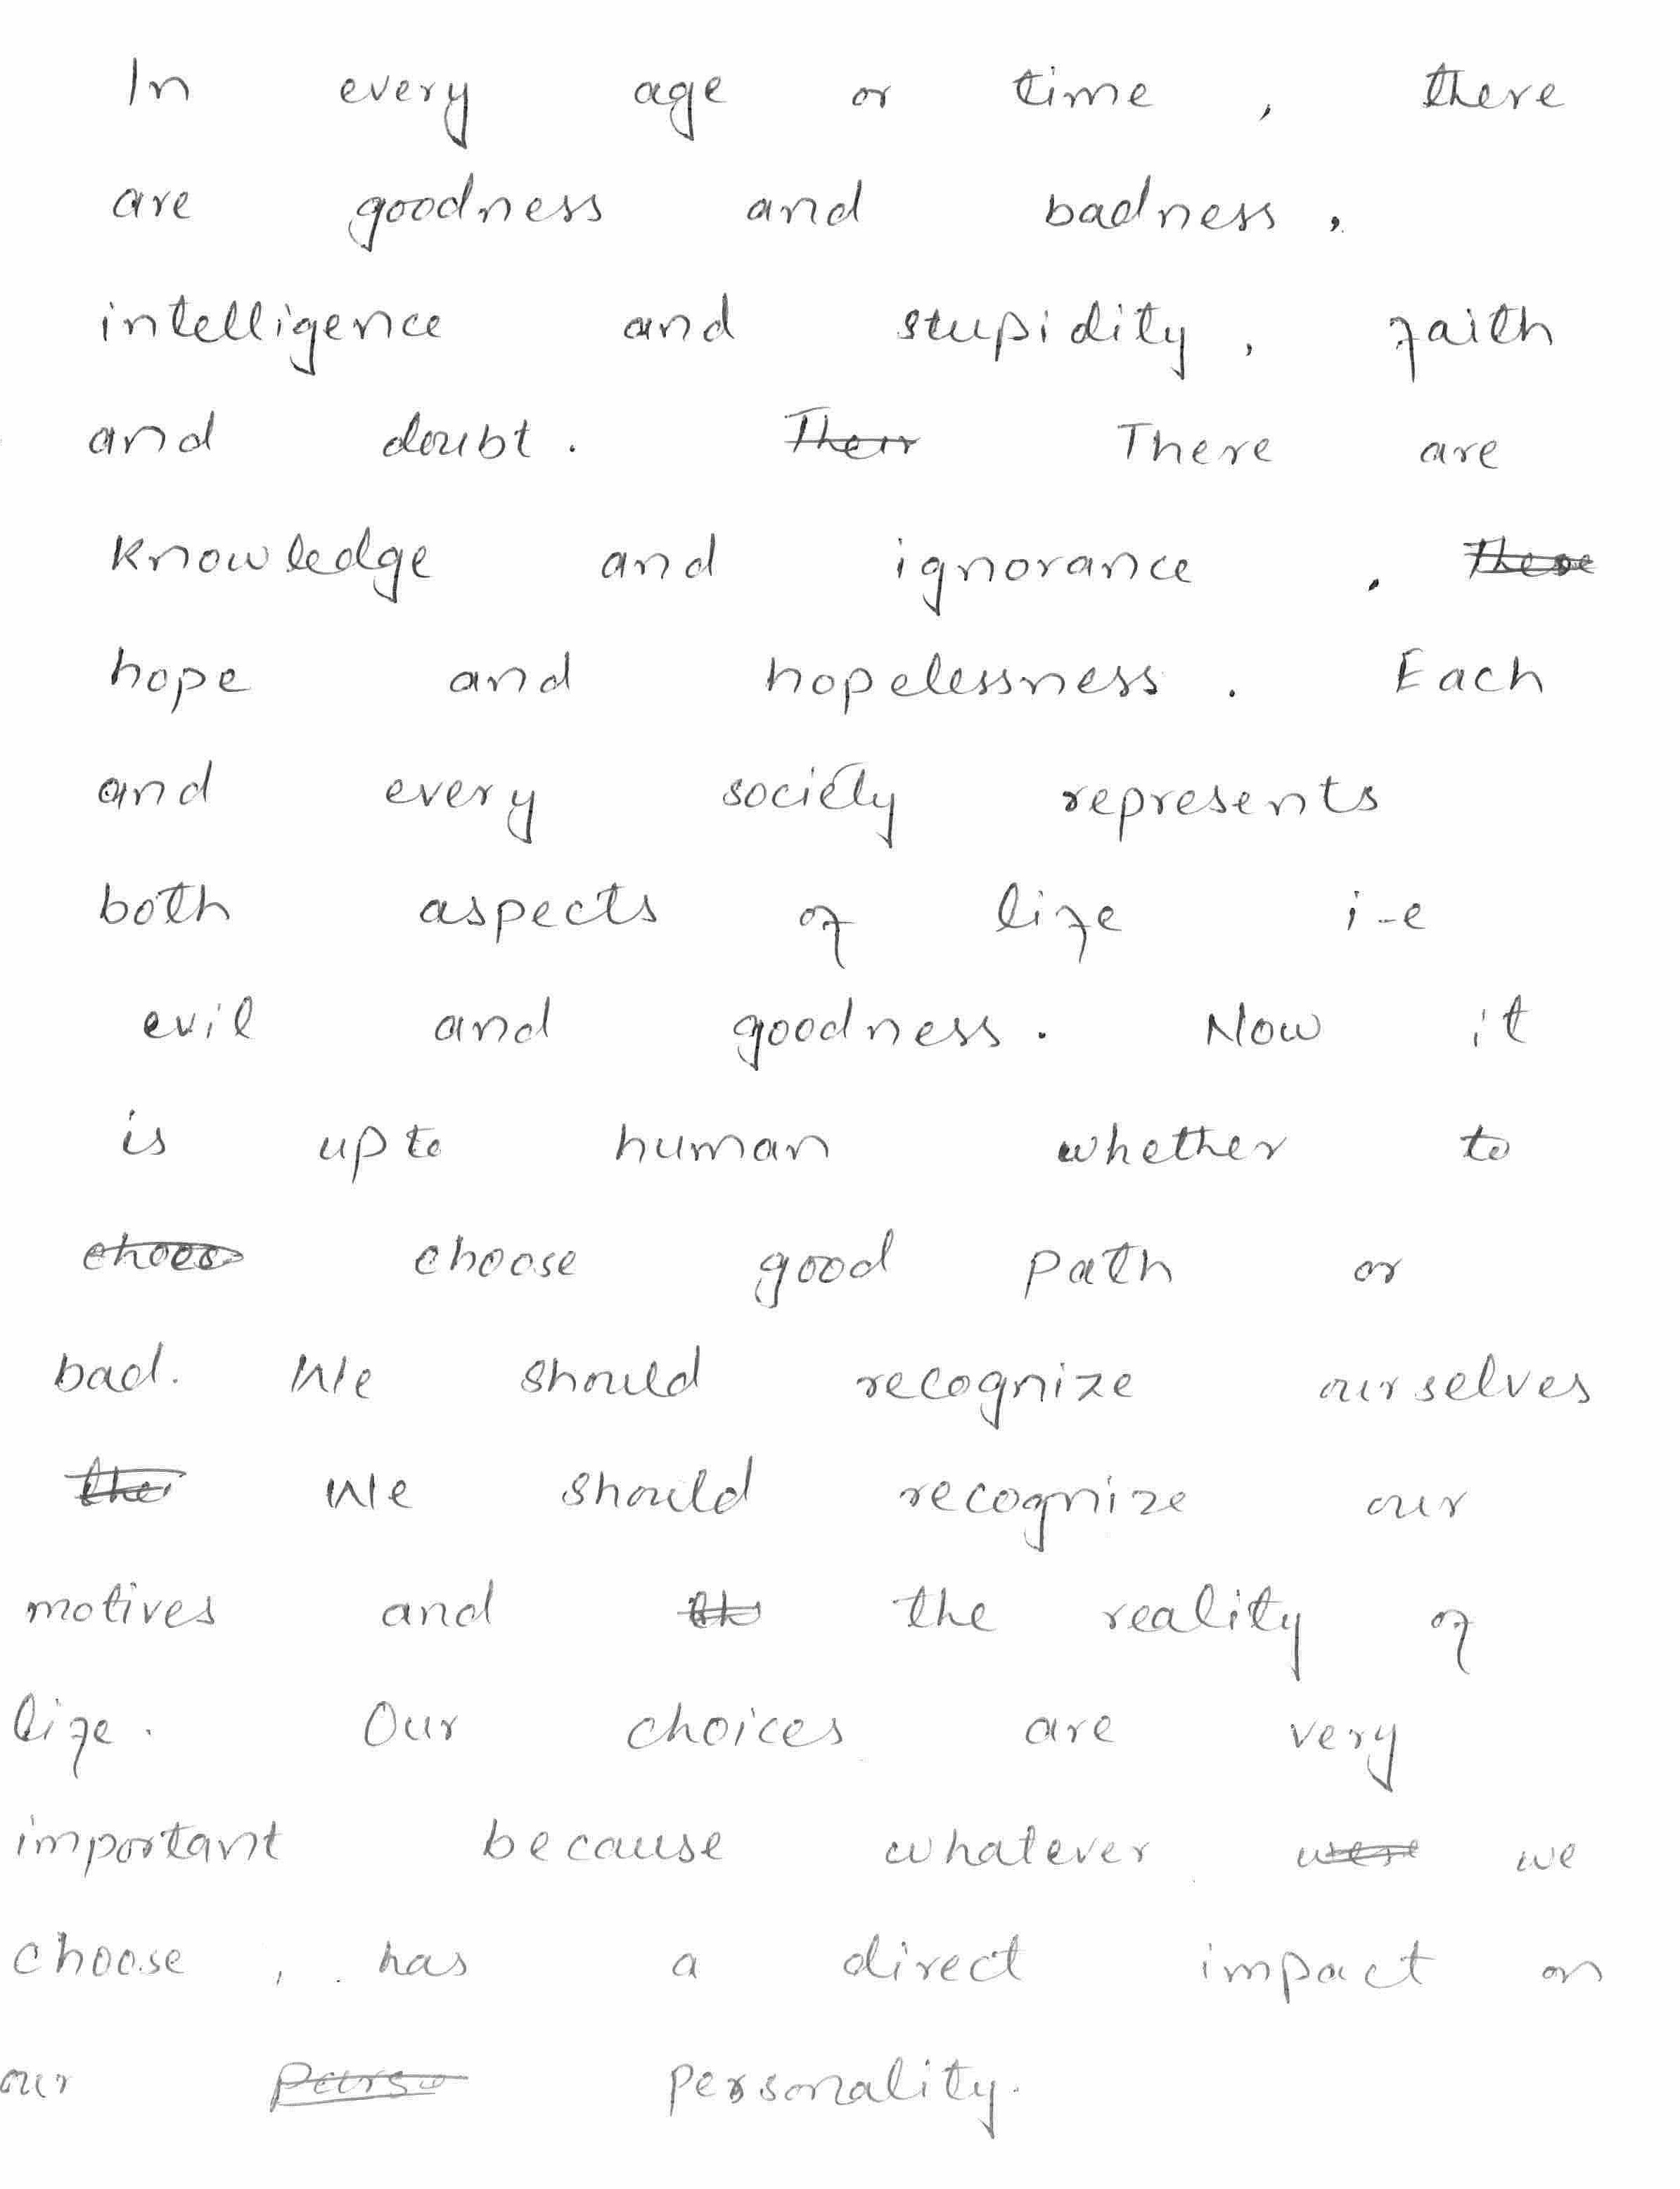 In every age or time , there
are goodness and badness ,
intelligence and stupidity , faith
and doubt . There are
knowledge and ignorance ,
hope and hopelessness . Each
and every society represents
both aspects of life i-e
evil and goodness . Now it
is upto human whether to
choose good path or
bad. We should recognize ourselves
We should recognize our
motives and the reality of
life . Our choices are very
important because whatever we
choose , has a direct impact on
our personality.